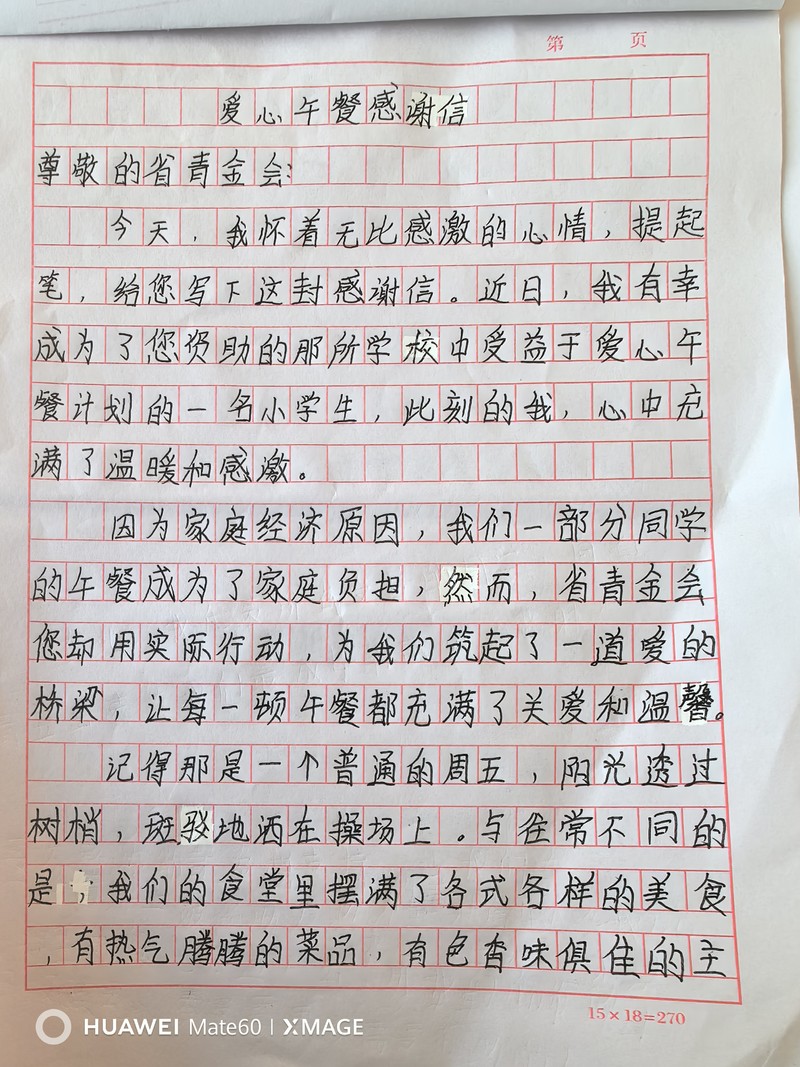 第 页
爱心午餐感谢信
尊敬的省青金会:
今天，我怀着无比感激的心情，提起
笔，给您写下这封感谢信。近日，我有幸
成为了您资助的那所学校中受益于爱心午
餐计划的一名小学生，此刻的我，心中充
满了温暖和感激。
因为家庭经济原因，我们一部分同学
的午餐成为了家庭负担，然而，省青金会
您却用实际行动，为我们筑起了一道爱的
桥梁，让每一顿午餐都充满了关爱和温馨。
记得那是一个普通的周五，阳光透过
树梢，斑驳地洒在操场上。与往常不同的
是，我们的食堂里摆满了各式各样的美食
，有热气腾腾的菜品，有色香味俱佳的主
15×18=270
HUAWEI Mate60 | XMAGE